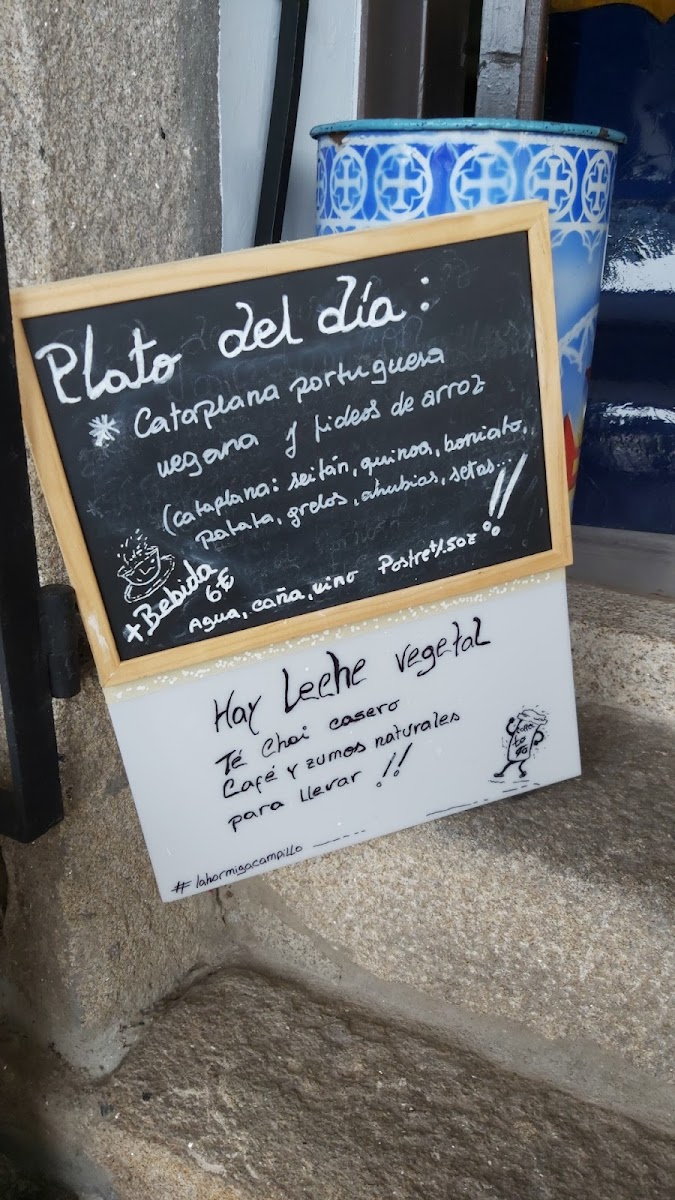 Plato del día:
* Cataplana portuguesa
vegana y fideos de arroz
(cataplana: seitán, quinoa, boniato,
patata, grelos, alubias, setas...!!
+ Bebida
6€
Agua, caña, vino Postre +1.50€
Hay Leche vegetal
Té Chai casero
Café y zumos naturales
para llevar !!
#lahormigacampillo